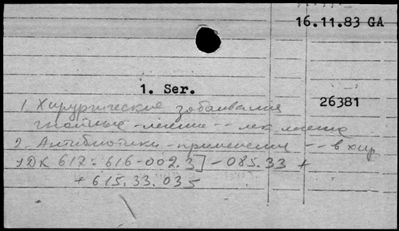 16.11.83 GA
1. Ser.
26381
1. Хирургические заболевания
гнойные - лечение -- лек. лечение
2. Антибиотики - применение -- в хир.
УДК 617: 616-002.3] - 085.33 +
+ 615.33.035